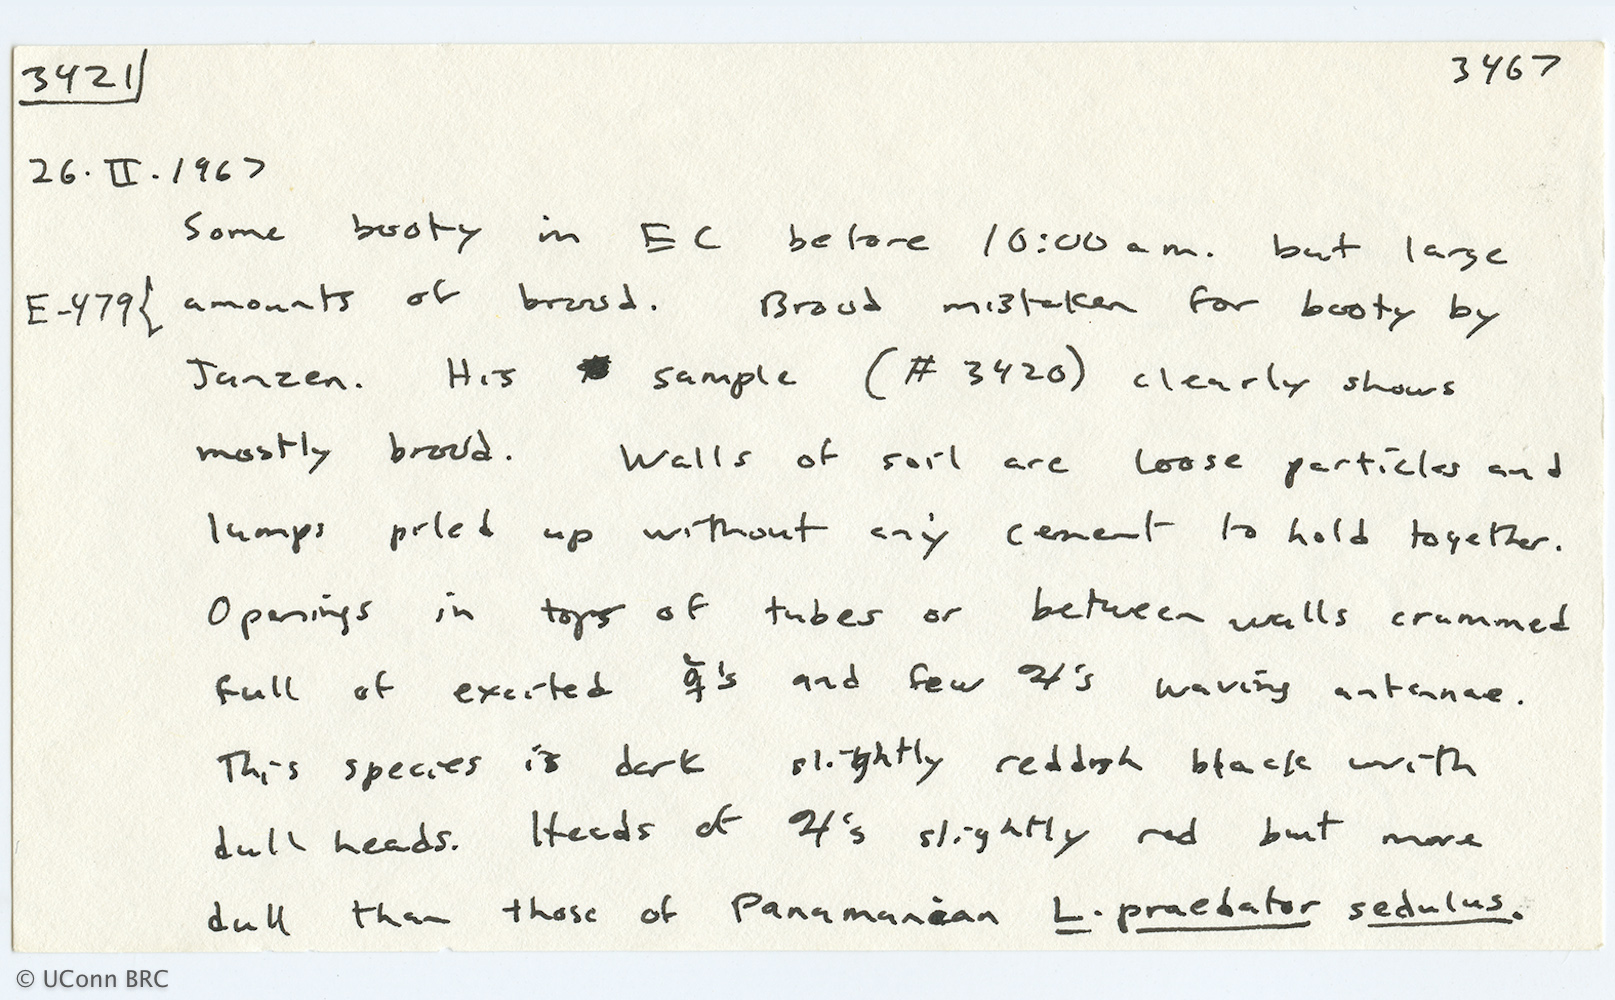 3421 3467
26.II.1967
Some booty in EC before 10:00 am. but large
E-479{ amounts of brood. Brood mistaken for booty by
Janzen. His sample (# 3420) clearly shows
mostly brood. Walls of soil are loose particles and
lumps piled up without any cement to hold together.
Openings in tops of tubes or between walls crammed
full of excited ☿'s and few ♃'s waving antennae.
This species is dark slightly reddish black with
dull heads. Heads of ♃'s slightly red but more
dull than those of Panamanian L. praedator sedulus.
© UConn BRC